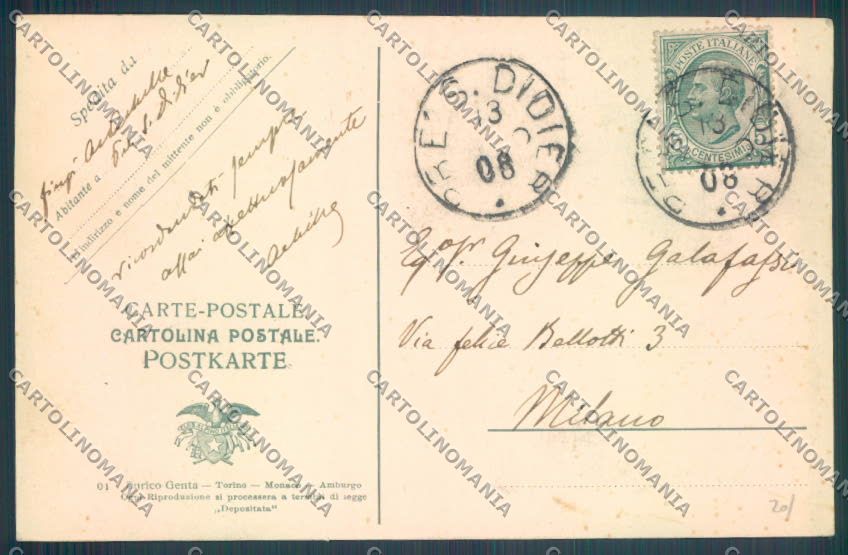 Spedita da
Abitante a Prè S. Didier
L'indirizzo e nome del mittente non è obbligatorio.
ricordandoti sempre
assai affettuosamente
Achille
CARTE-POSTALE
CARTOLINA POSTALE.
POSTKARTE
01 Enrico Genta — Torino — Monaco — Amburgo
Ogni Riproduzione si processera a termini di legge
„Depositata"
PRÈ S. DIDIER
13
08
POSTE ITALIANE
CENTESIMI 5
PRÈ S. DIDIER
13
08
Giuseppe Galafassi
Via Felice Bellotti 3
Milano
20/
CARTOLINOMANIA